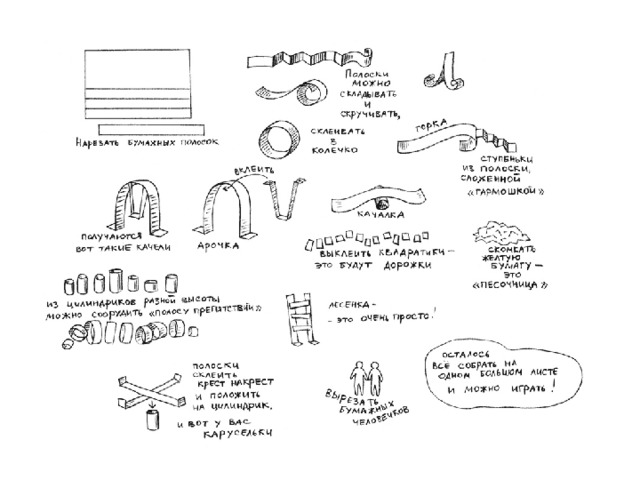 Нарезать бумажных полосок
Полоски
можно
складывать
и
скручивать,
склеивать
в
колечко
горка
ступеньки
из полоски,
сложенной
«гармошкой»
вклеить
получаются
вот такие качели
Арочка
качалка
выклеить квадратики –
это будут дорожки
скомкать
желтую
бумагу –
это
«песочница»
из цилиндриков разной высоты
можно соорудить «полосу препятствий»
лесенка –
– это очень просто!
полоски
склеить
крест накрест
и положить
на цилиндрик,
и вот у вас
карусельки
вырезать
бумажных
человечков
осталось
все собрать на
одном большом листе
и можно играть!